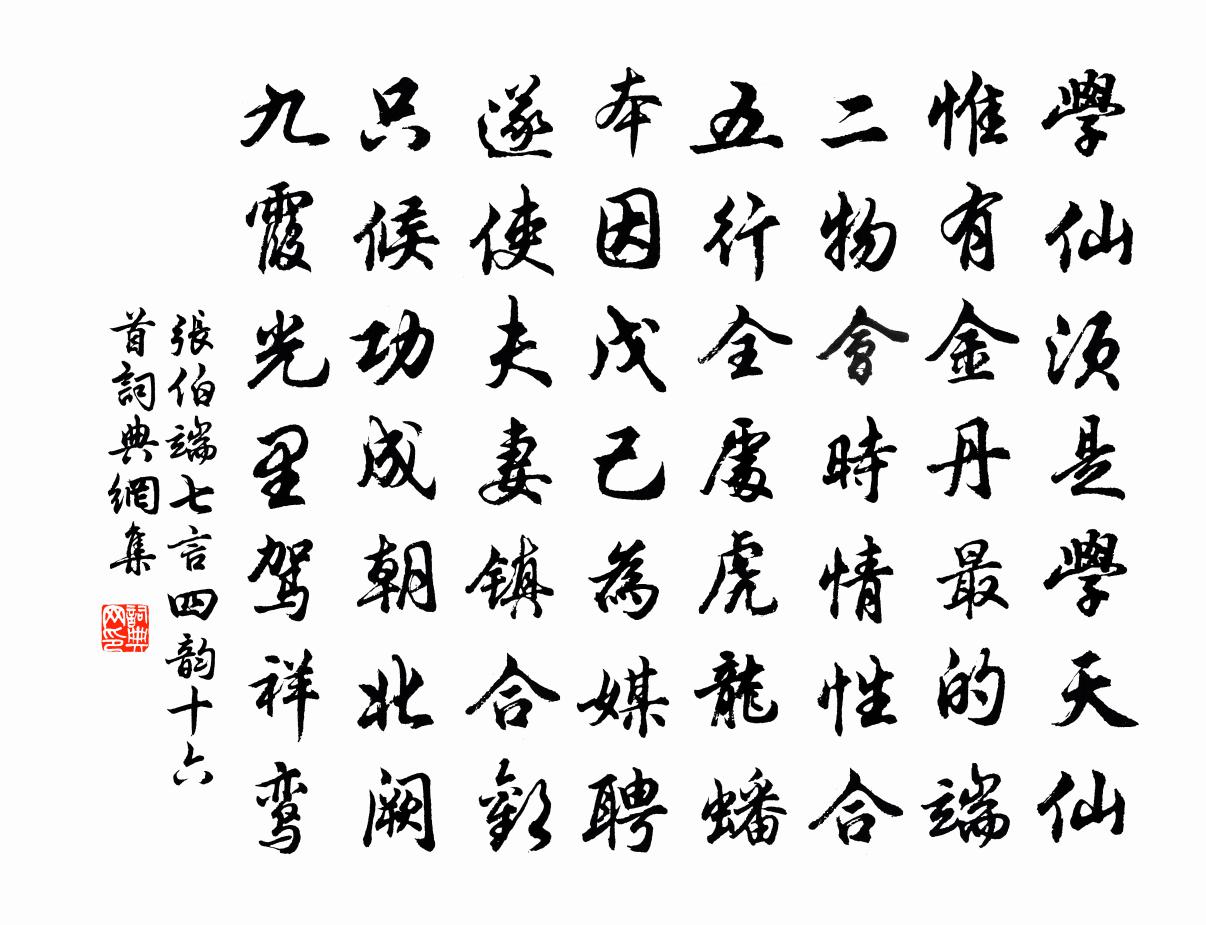 學仙須是學天仙
惟有金丹最的端
二物會時情性合
五行全處虎龍蟠
本因戊己為媒聘
遂使夫妻鎮合歡
只候功成朝北闕
九霞光里驾祥鸾
張伯端七言四韵十六
首詞典網集
詞典网印